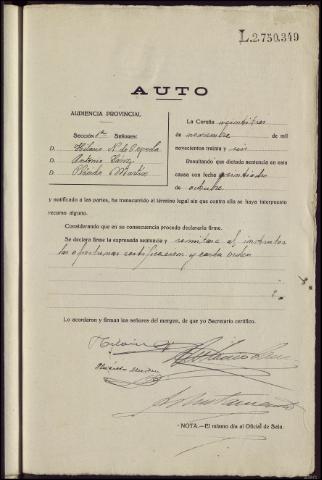 L.2.750.349
AUTO
AUDIENCIA PROVINCIAL
Sección 1ª Señores:
D. Hilario N. de Cepeda
D. Antonio
D. Martín
La Coruña veintitres
de noviembre de mil
novecientos treinta y seis
Resultando que dictada sentencia en esta
causa con fecha veintidós
de octubre
y notificada a las partes, ha transcurrido el término legal sin que contra ella se haya interpuesto
recurso alguno.
Considerando que en su consecuencia procede declararla firme.
Se declara firme la expresada sentencia y remítase al instructor
las oportunas certificacion y carta orden
Lo acordaron y firman los señores del margen, de que yo Secretario certifico.
NOTA.—El mismo día al Oficial de Sala.